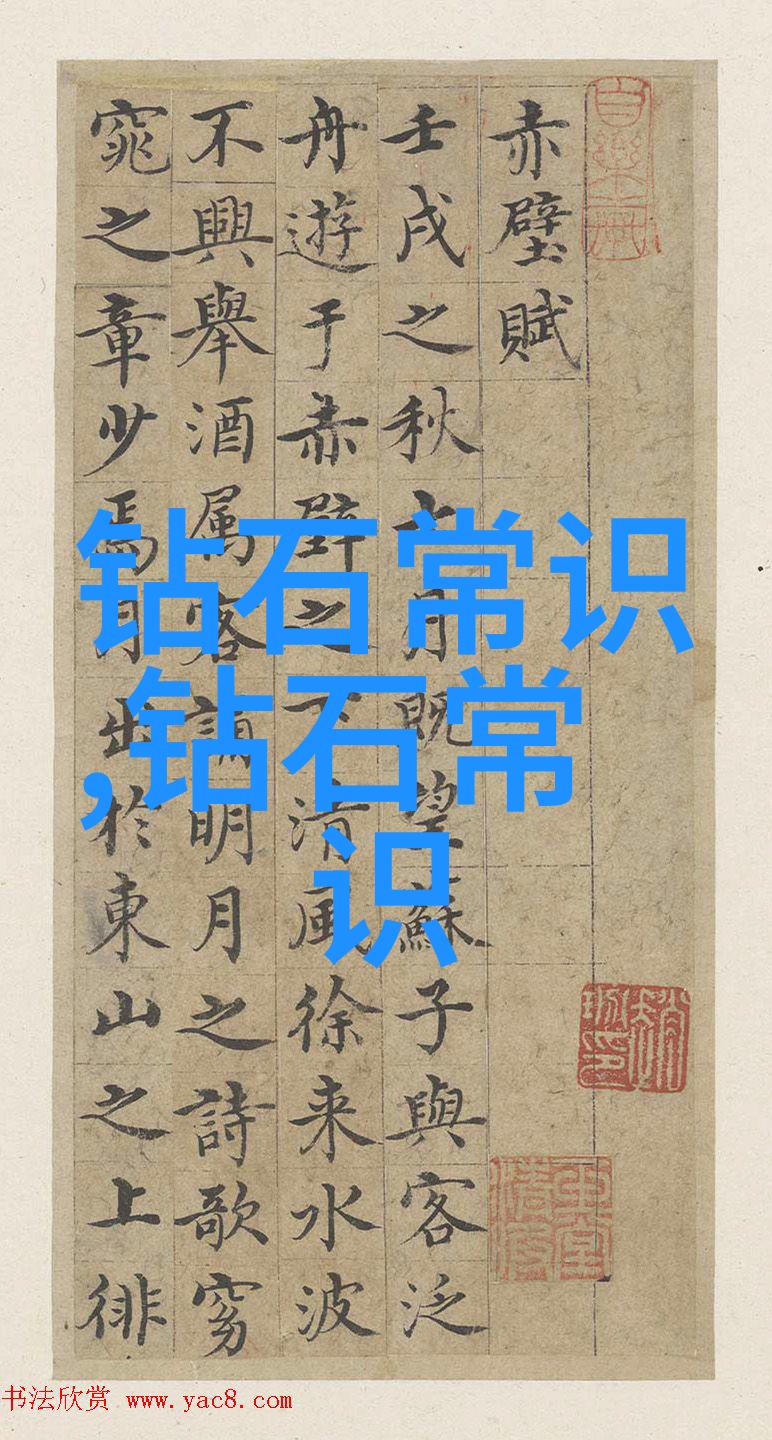 赤壁賦
壬戌之秋七月既望蘇子與客泛
舟遊于赤壁之下清風徐来水波
不興舉酒属客誦明月之詩歌窈
窕之章少焉月出於東山之上徘
钻石常识
,钻石常
识
书法欣赏 www.yac8.com